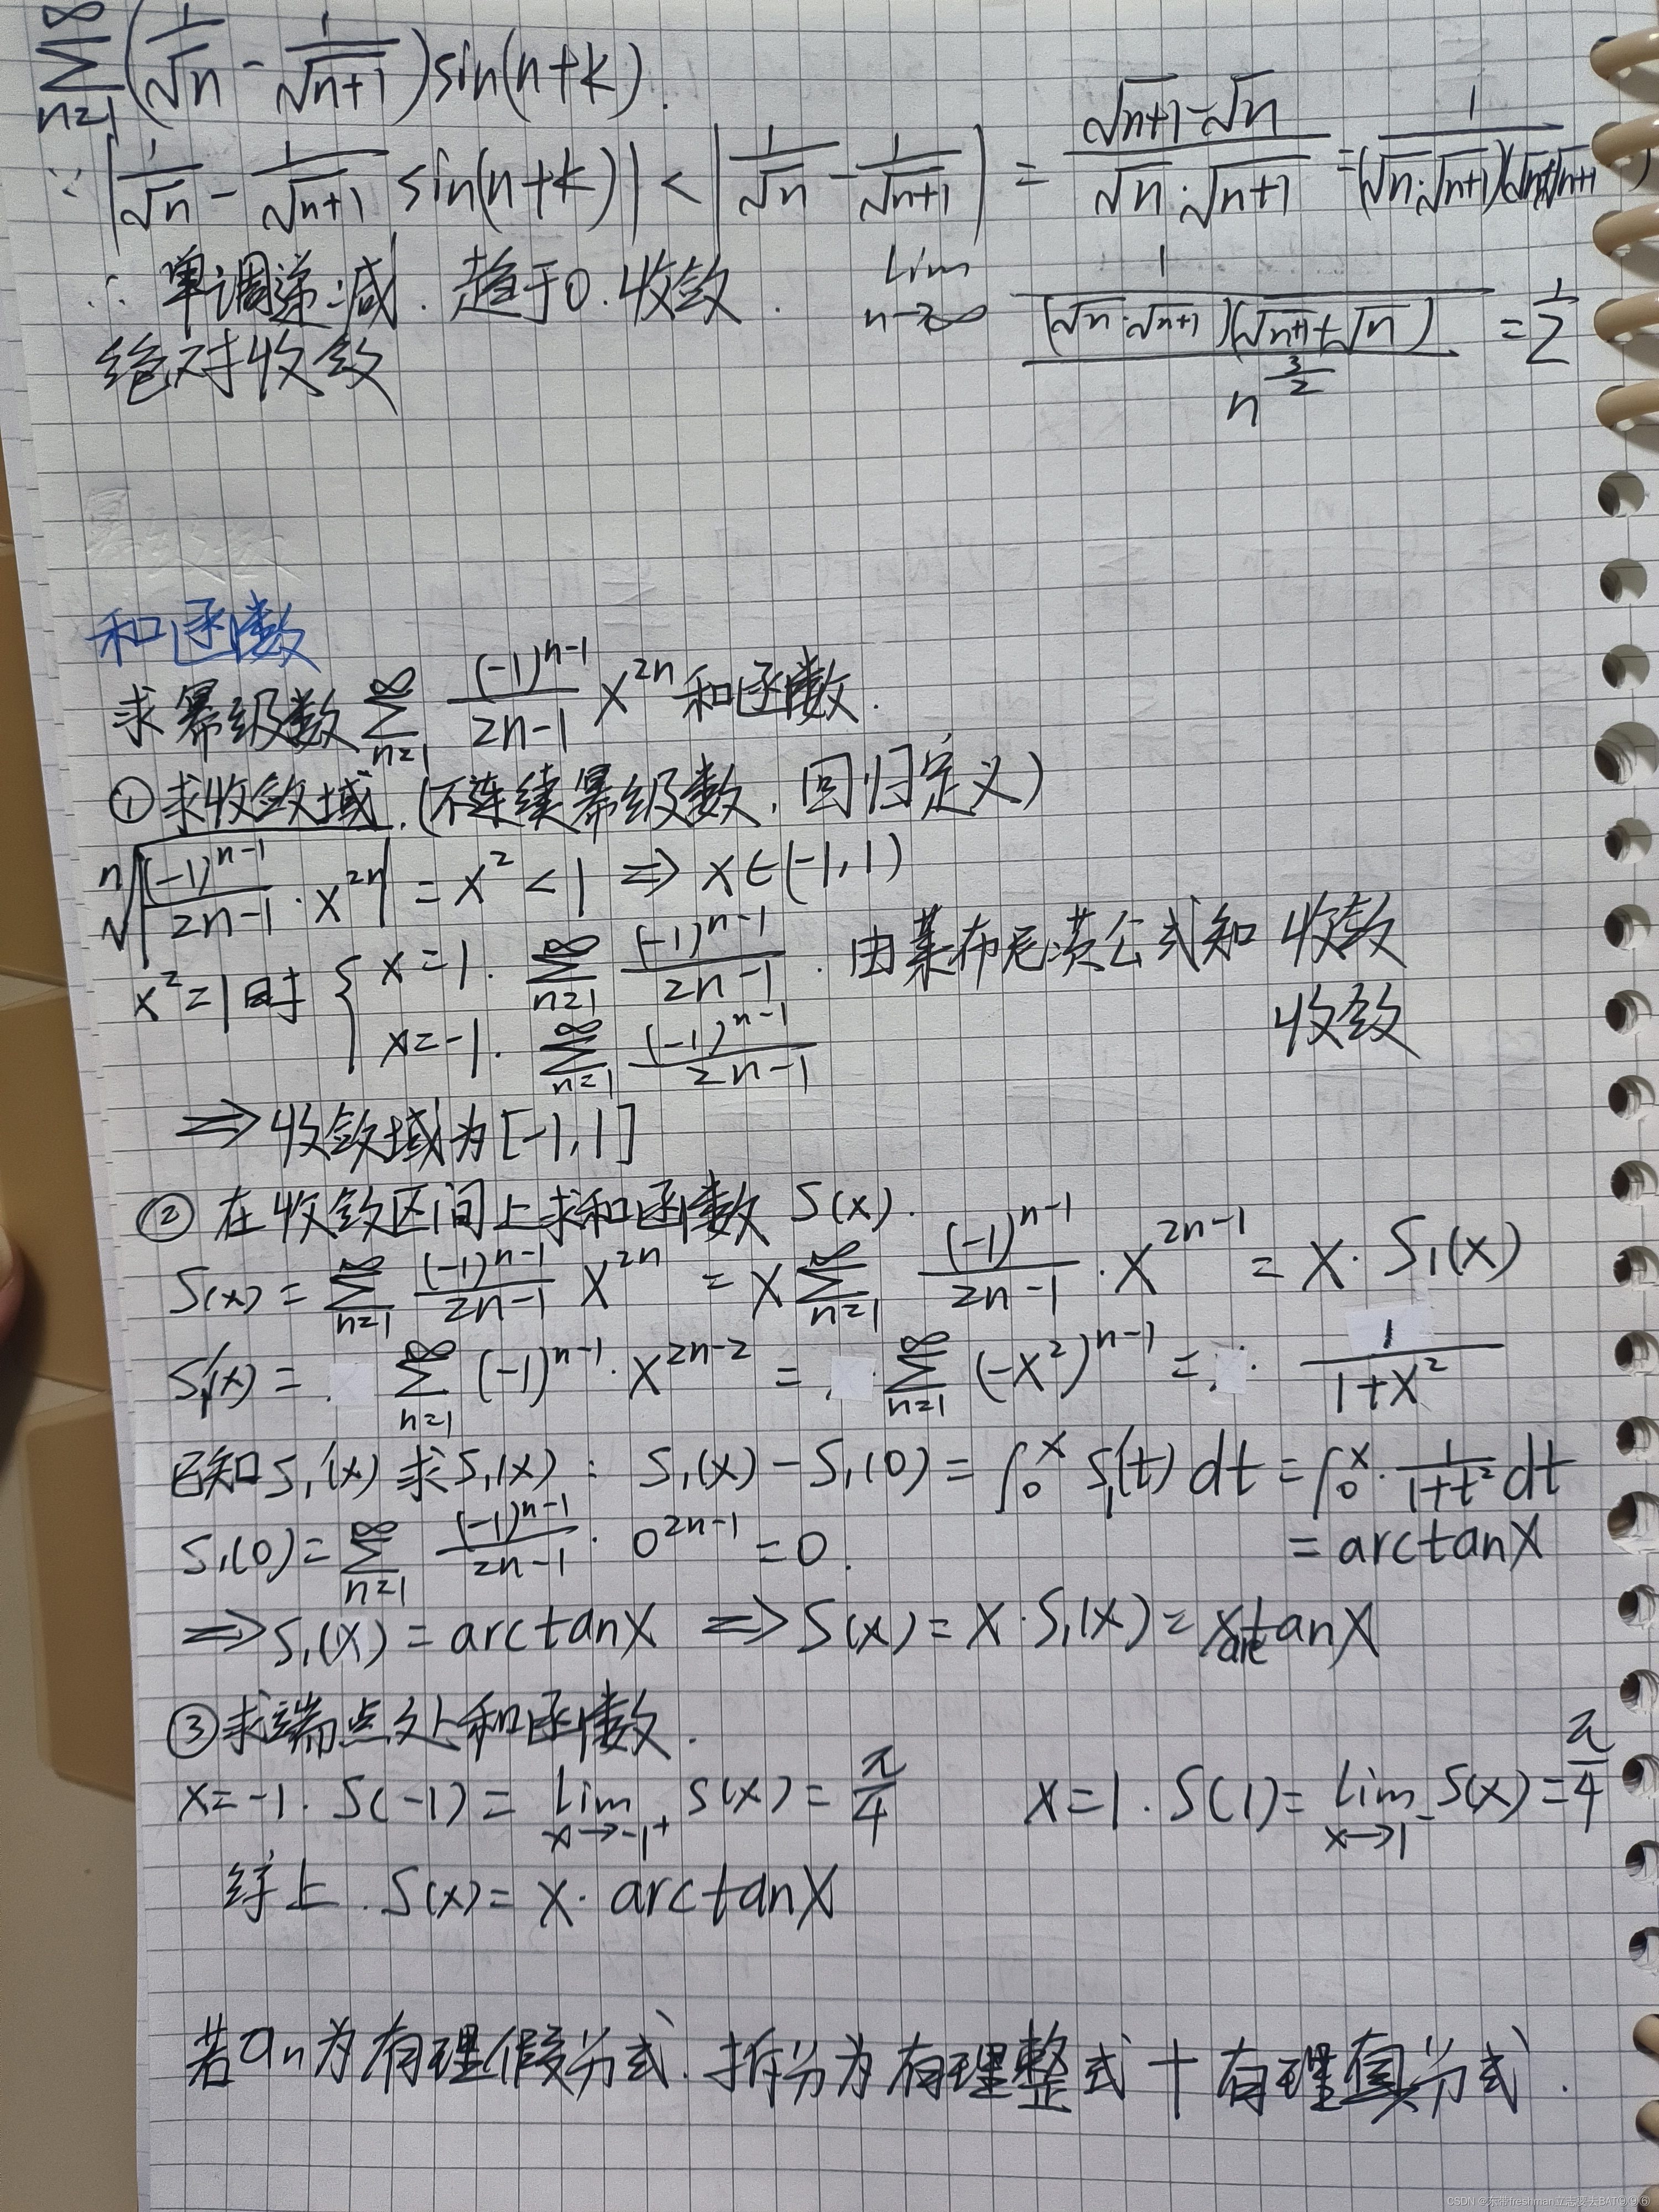 ∑_{n=1}^{∞} (1/√n - 1/√(n+1)) sin(n+k).
∵ |1/√n - 1/√(n+1) sin(n+k)| < |1/√n - 1/√(n+1)| = (√(n+1)-√n)/(√n·√(n+1)) = 1/((√n·√(n+1))(√n+√(n+1)))
∴ 单调递减. 趋于0. 收敛. lim_{n→∞} 1/((√n·√(n+1))(√(n+1)+√n)) / n^{3/2} = 1/2
绝对收敛
和函数
求幂级数 ∑_{n=1}^{∞} (-1)^{n-1}/(2n-1) x^{2n} 和函数.
①求收敛域. (不连续幂级数, 回归定义)
ⁿ√|(-1)^{n-1}/(2n-1) · x^{2n}| = x² < 1 ⇒ x∈(-1,1)
x²=1时 { x=1. ∑_{n=1}^{∞} (-1)^{n-1}/(2n-1). 由莱布尼茨公式知 收敛
x=-1. ∑_{n=1}^{∞} (-1)^{n-1}/(2n-1) 收敛
⇒收敛域为[-1,1]
② 在收敛区间上求和函数 S(x).
S(x) = ∑_{n=1}^{∞} (-1)^{n-1}/(2n-1) x^{2n} = x ∑_{n=1}^{∞} (-1)^{n-1}/(2n-1) · x^{2n-1} = x · S₁(x)
S₁'(x) = ∑_{n=1}^{∞} (-1)^{n-1} · x^{2n-2} = ∑_{n=1}^{∞} (-x²)^{n-1} = 1/(1+x²)
已知S₁'(x) 求S₁(x) : S₁(x) - S₁(0) = ∫₀ˣ S₁'(t) dt = ∫₀ˣ 1/(1+t²) dt
S₁(0) = ∑_{n=1}^{∞} (-1)^{n-1}/(2n-1) · 0^{2n-1} = 0. = arctanx
⇒S₁(x) = arctanx ⇒ S(x) = x·S₁(x) = xarctanx
③求端点处和函数.
x=-1. S(-1) = lim_{x→-1⁺} S(x) = π/4 x=1. S(1) = lim_{x→1⁻} S(x) = π/4
综上. S(x) = x· arctanx
若an为有理假分式. 拆分为有理整式+有理真分式.
CSDN @东带freshman立志要去BAT(9,9,6)